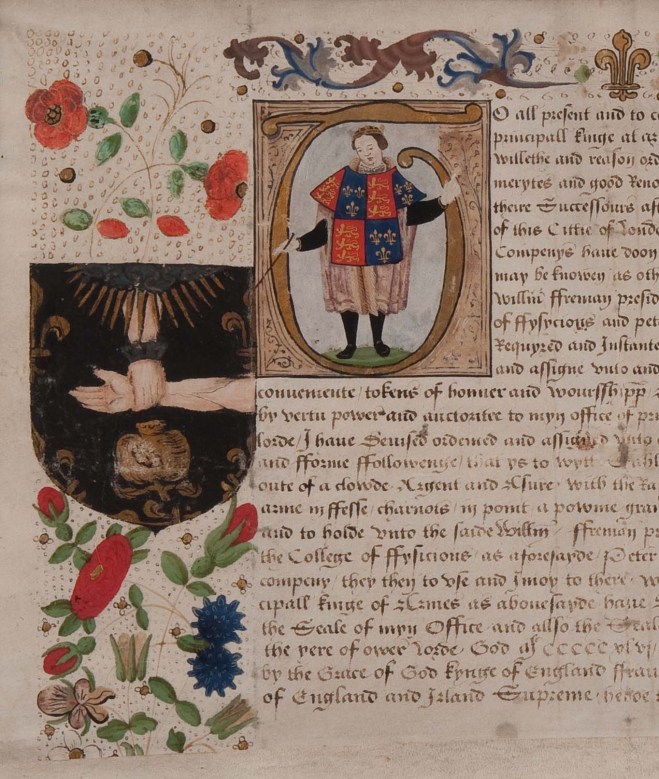 O all present and to
principall kinge al ar
willethe and reason ord
merytes and good Reno
theire Successours aft
of this Cittie of Londo
Compenys haue doon
may be knowen as oth
willm ffreman presid
of ffysycions and pet
Requyred and Instante
and assigne vnto and
conueniente / tokens of honner and wourssh
by vertu power and auctoritee to myn office of pr
lorde / I haue Deuised ordened and assigned vnto
and fforme ffollowenge / that ys to wytt
oute of a clowde Argent and Asure with the Ra
arme in ffesse / charnois / in point a powme gra
and to holde vnto the saide Willm ffreman pr
the College of ffysicions / as aforesayde / Peter
compeny they then to vse and Inioy to there
cipall kinge of Armes as abouesayde haue
the Seale of myn Office and allso the Seal
the yere of ower lorde God CCCCC xlvi
by the Grace of God kynge of England ffrau
of England and Irland Supreme hedde